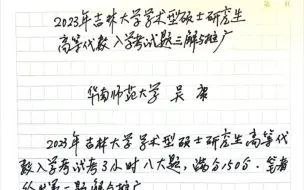 2023年吉林大学学术型硕士研究生
高等代数入学考试题三解与推广
华南师范大学 吴康
2023年吉林大学学术型硕士研究生高等代
数入学考试考3小时八大题,满分150分.笔者